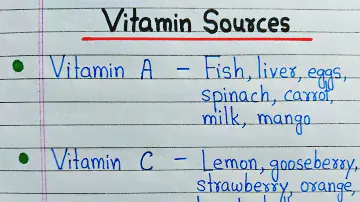 Vitamin Sources
Vitamin A - Fish, liver, eggs,
spinach, carrot,
milk, mango
Vitamin C - Lemon, gooseberry,
strawberry, orange,